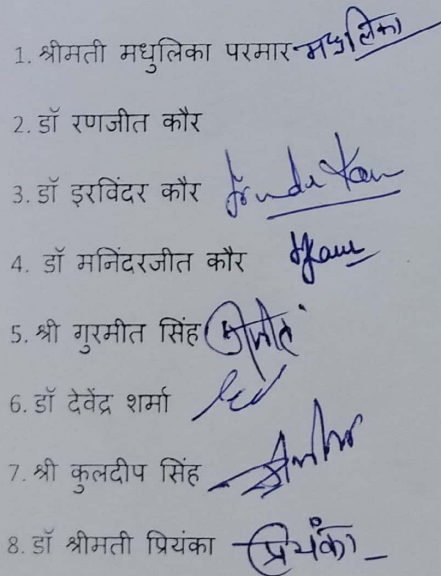 1. श्रीमती मधुलिका परमार मधुलिका
2. डॉ रणजीत कौर
3. डॉ इरविंदर कौर
4. डॉ मनिंदरजीत कौर
5. श्री गुरमीत सिंह
6. डॉ देवेंद्र शर्मा
7. श्री कुलदीप सिंह
8. डॉ श्रीमती प्रियंका प्रियंका